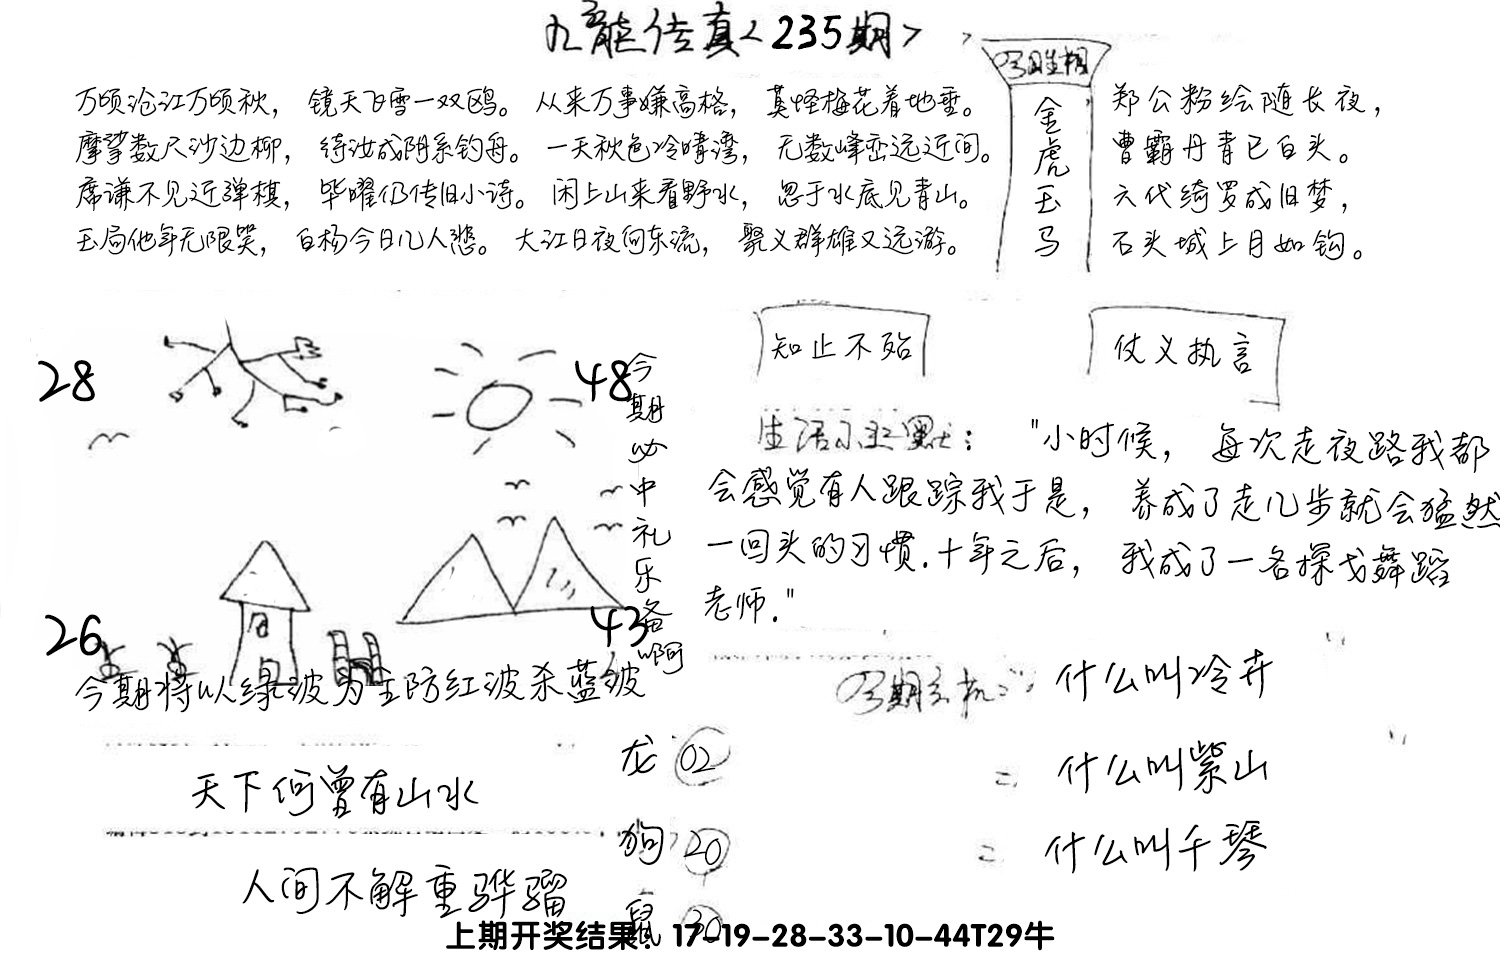 九龙传真<235期>
今期生相
金虎玉马
万顷沧江万顷秋，镜天飞雪一双鸥。从来万事嫌高格，莫怪梅花着地垂。
摩挲数尺沙边柳，待汝成阴系钓舟。一天秋色冷晴湾，无数峰峦远近间。
席谦不见近弹棋，毕曜仍传旧小诗。闲上山来看野水，忽于水底见青山。
玉局他年无限笑，白杨今日几人悲。大江日夜向东流，聚义群雄又远游。
郑公粉绘随长夜，
曹霸丹青已白头。
六代绮罗成旧梦，
石头城上月如钩。
28
48
26
43
今期必中礼乐备啊
今期将以绿波为主防红波杀蓝波
知止不殆
仗义执言
生活小幽默："小时候，每次走夜路我都
会感觉有人跟踪我于是，养成了走几步就会猛然
一回头的习惯.十年之后，我成了一名探戈舞蹈
老师."
天下何曾有山水
人间不解重骅骝
龙 02
狗 20
鼠 30
今期玄机：什么叫冷卉
二 什么叫紫山
二 什么叫千琴
上期开奖结果：17-19-28-33-10-44T29牛